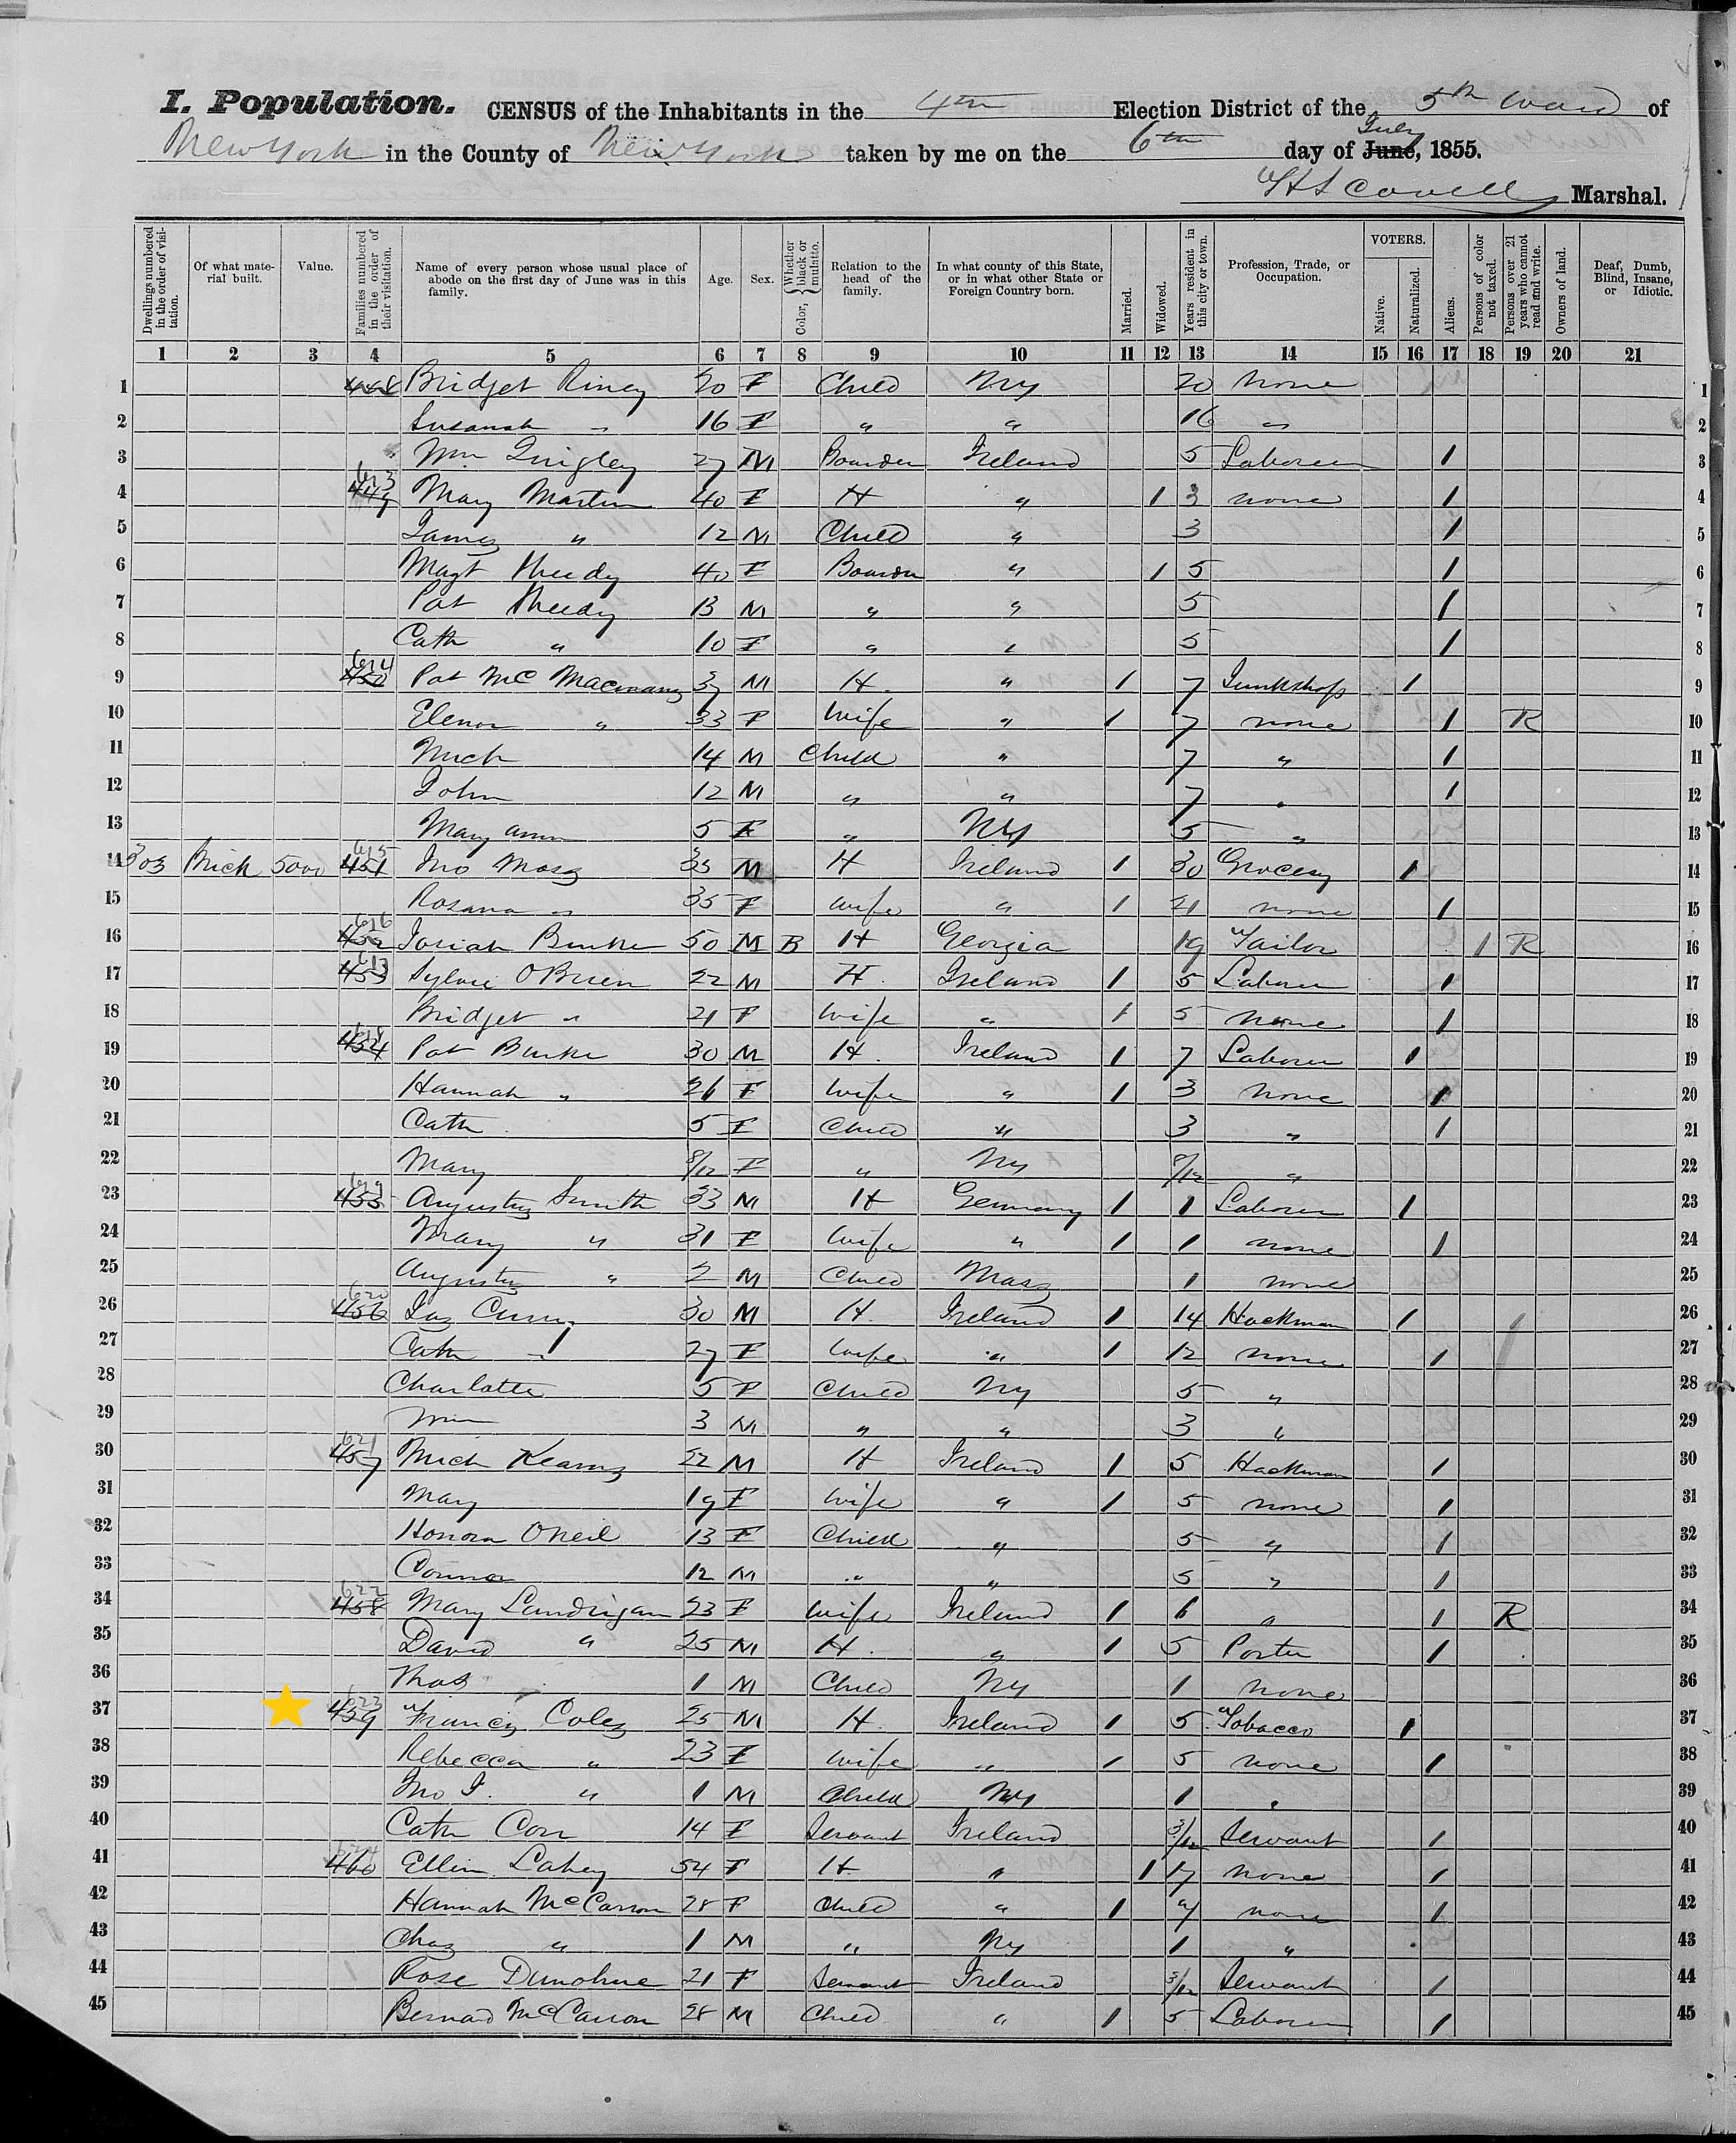 I. Population. CENSUS of the Inhabitants in the 4th Election District of the 5th Ward of
New York in the County of New York taken by me on the 6th day of June, July 1855.
Covell Marshal.
Dwellings numbered in the order of visitation. Of what material built. Value. Families numbered in the order of their visitation. Name of every person whose usual place of abode on the first day of June was in this family. Age. Sex. Color, Whether black or mulatto. Relation to the head of the family. In what county of this State, or in what other State or Foreign Country born. Married. Widowed. Years resident in this city or town. Profession, Trade, or Occupation. VOTERS. Native. Naturalized. Aliens. Persons of color not taxed. Persons over 21 years who cannot read and write. Owners of land. Deaf, Dumb, Blind, Insane, or Idiotic.
1 2 3 4 5 6 7 8 9 10 11 12 13 14 15 16 17 18 19 20 21
1 448 Bridget Riney 20 F Child NY 20 none 1
2 Susanah " 16 F " " 16 " 2
3 Wm Quigley 27 M Boarder Ireland 5 Laborer 1 3
4 613 449 Mary Martin 40 F H " 1 3 none 1 4
5 James " 12 M Child " 3 1 5
6 Magt Sheedy 40 F Boarder " 1 5 1 6
7 Pat Sheedy 13 M " " 5 1 7
8 Cath " 10 F " " 5 1 8
9 614 450 Pat Mc 37 M H. " 1 7 Junkshop 1 9
10 Elenor " 33 F Wife " 1 7 none 1 R 10
11 Mich 14 M Child " 7 " 1 11
12 John 12 M " " 7 " 1 12
13 Mary Ann 5 F " NY 5 " 13
14 303 Brick 5000 615 451 Jno Moss 35 M H Ireland 1 30 Grocery 1 14
15 Rosana " 35 F wife " 1 21 none 1 15
16 616 452 Josiah Burke 50 M B H Georgia 19 Tailor 1 R 16
17 617 453 OBrien 22 M H. Ireland 1 5 Laborer 1 17
18 Bridget " 21 F Wife " 1 5 none 1 18
19 618 454 Pat Burke 30 M H. Ireland 1 7 Laborer 1 19
20 Hannah " 26 F Wife " 1 3 none 1 20
21 Cath 5 F Child " 3 " 1 21
22 Mary 8/12 F " NY 8/12 " 22
23 619 455 Augustus Smith 33 M H Germany 1 1 Laborer 1 23
24 Mary " 31 F Wife " 1 1 none 1 24
25 Augustus " 2 M Child Mass 1 none 25
26 620 456 Jas Curry 30 M H. Ireland 1 14 Hackman 1 26
27 Cath " 27 F Wife " 1 12 none 1 27
28 Charlotte 5 F Child NY 5 " 28
29 Wm 3 M " " 3 " 29
30 621 457 Mich Kearns 22 M H Ireland 1 5 Hackman 1 30
31 Mary 19 F Wife " 1 5 none 1 31
32 Honora ONeil 13 F Child " 5 " 1 32
33 Connor 12 M " " 5 " 1 33
34 622 458 Mary Landrigan 23 F Wife Ireland 1 6 " 1 R 34
35 David " 25 M H. " 1 5 Porter 1 35
36 Thos 1 M Child NY 1 none 36
37 623 459 Francis Coles 25 M H. Ireland 1 5 Tobacco 1 37
38 Rebecca " 23 F Wife " 1 5 none 1 38
39 Jno F. " 1 M Child NY 1 " 39
40 Cath Corr 14 F Servant Ireland 3/12 Servant 1 40
41 624 460 Ellen Lahey 54 F H. " 1 17 none 1 41
42 Hannah McCarron 28 F Child " 1 none 1 42
43 Chas " 1 M " NY 1 " 43
44 Rose Dunohue 21 F Servant Ireland 3/12 Servant 1 44
45 Bernard McCarron 28 M Child " 1 5 Laborer 1 45